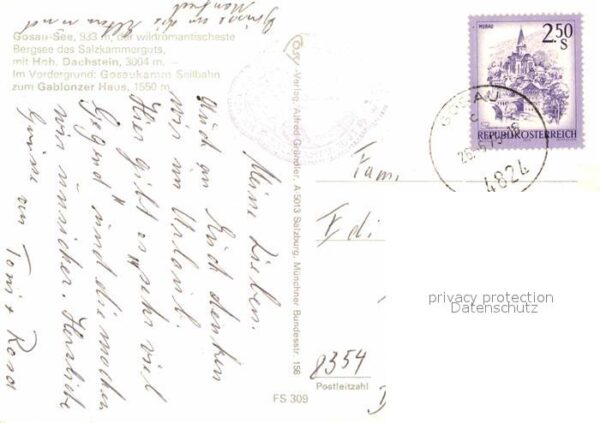 Gosau-See, 933 m, der wildromantischeste
Bergsee des Salzkammerguts,
mit Hoh. Dachstein, 3004 m. –
Im Vordergrund: Gosaukamm Seilbahn
zum Gablonzer Haus, 1550 m
Meine Lieben.
Auch an Euch denken
wir im Urlaub.
Hier gibt es sehr viel
Gegend und die machen
wir unsicher. Herzliche
Grüsse von Toni + Rosa
Grüsse an die Eltern und
Manfred
Verlag Alfred Gründler, A 5013 Salzburg, Münchner Bundesstr. 156
MURAU
2.50
S
REPUBLIK ÖSTERREICH
GOSAU
4824
Fam.
Edi
8354
Postleitzahl
FS 309
privacy protection
Datenschutz